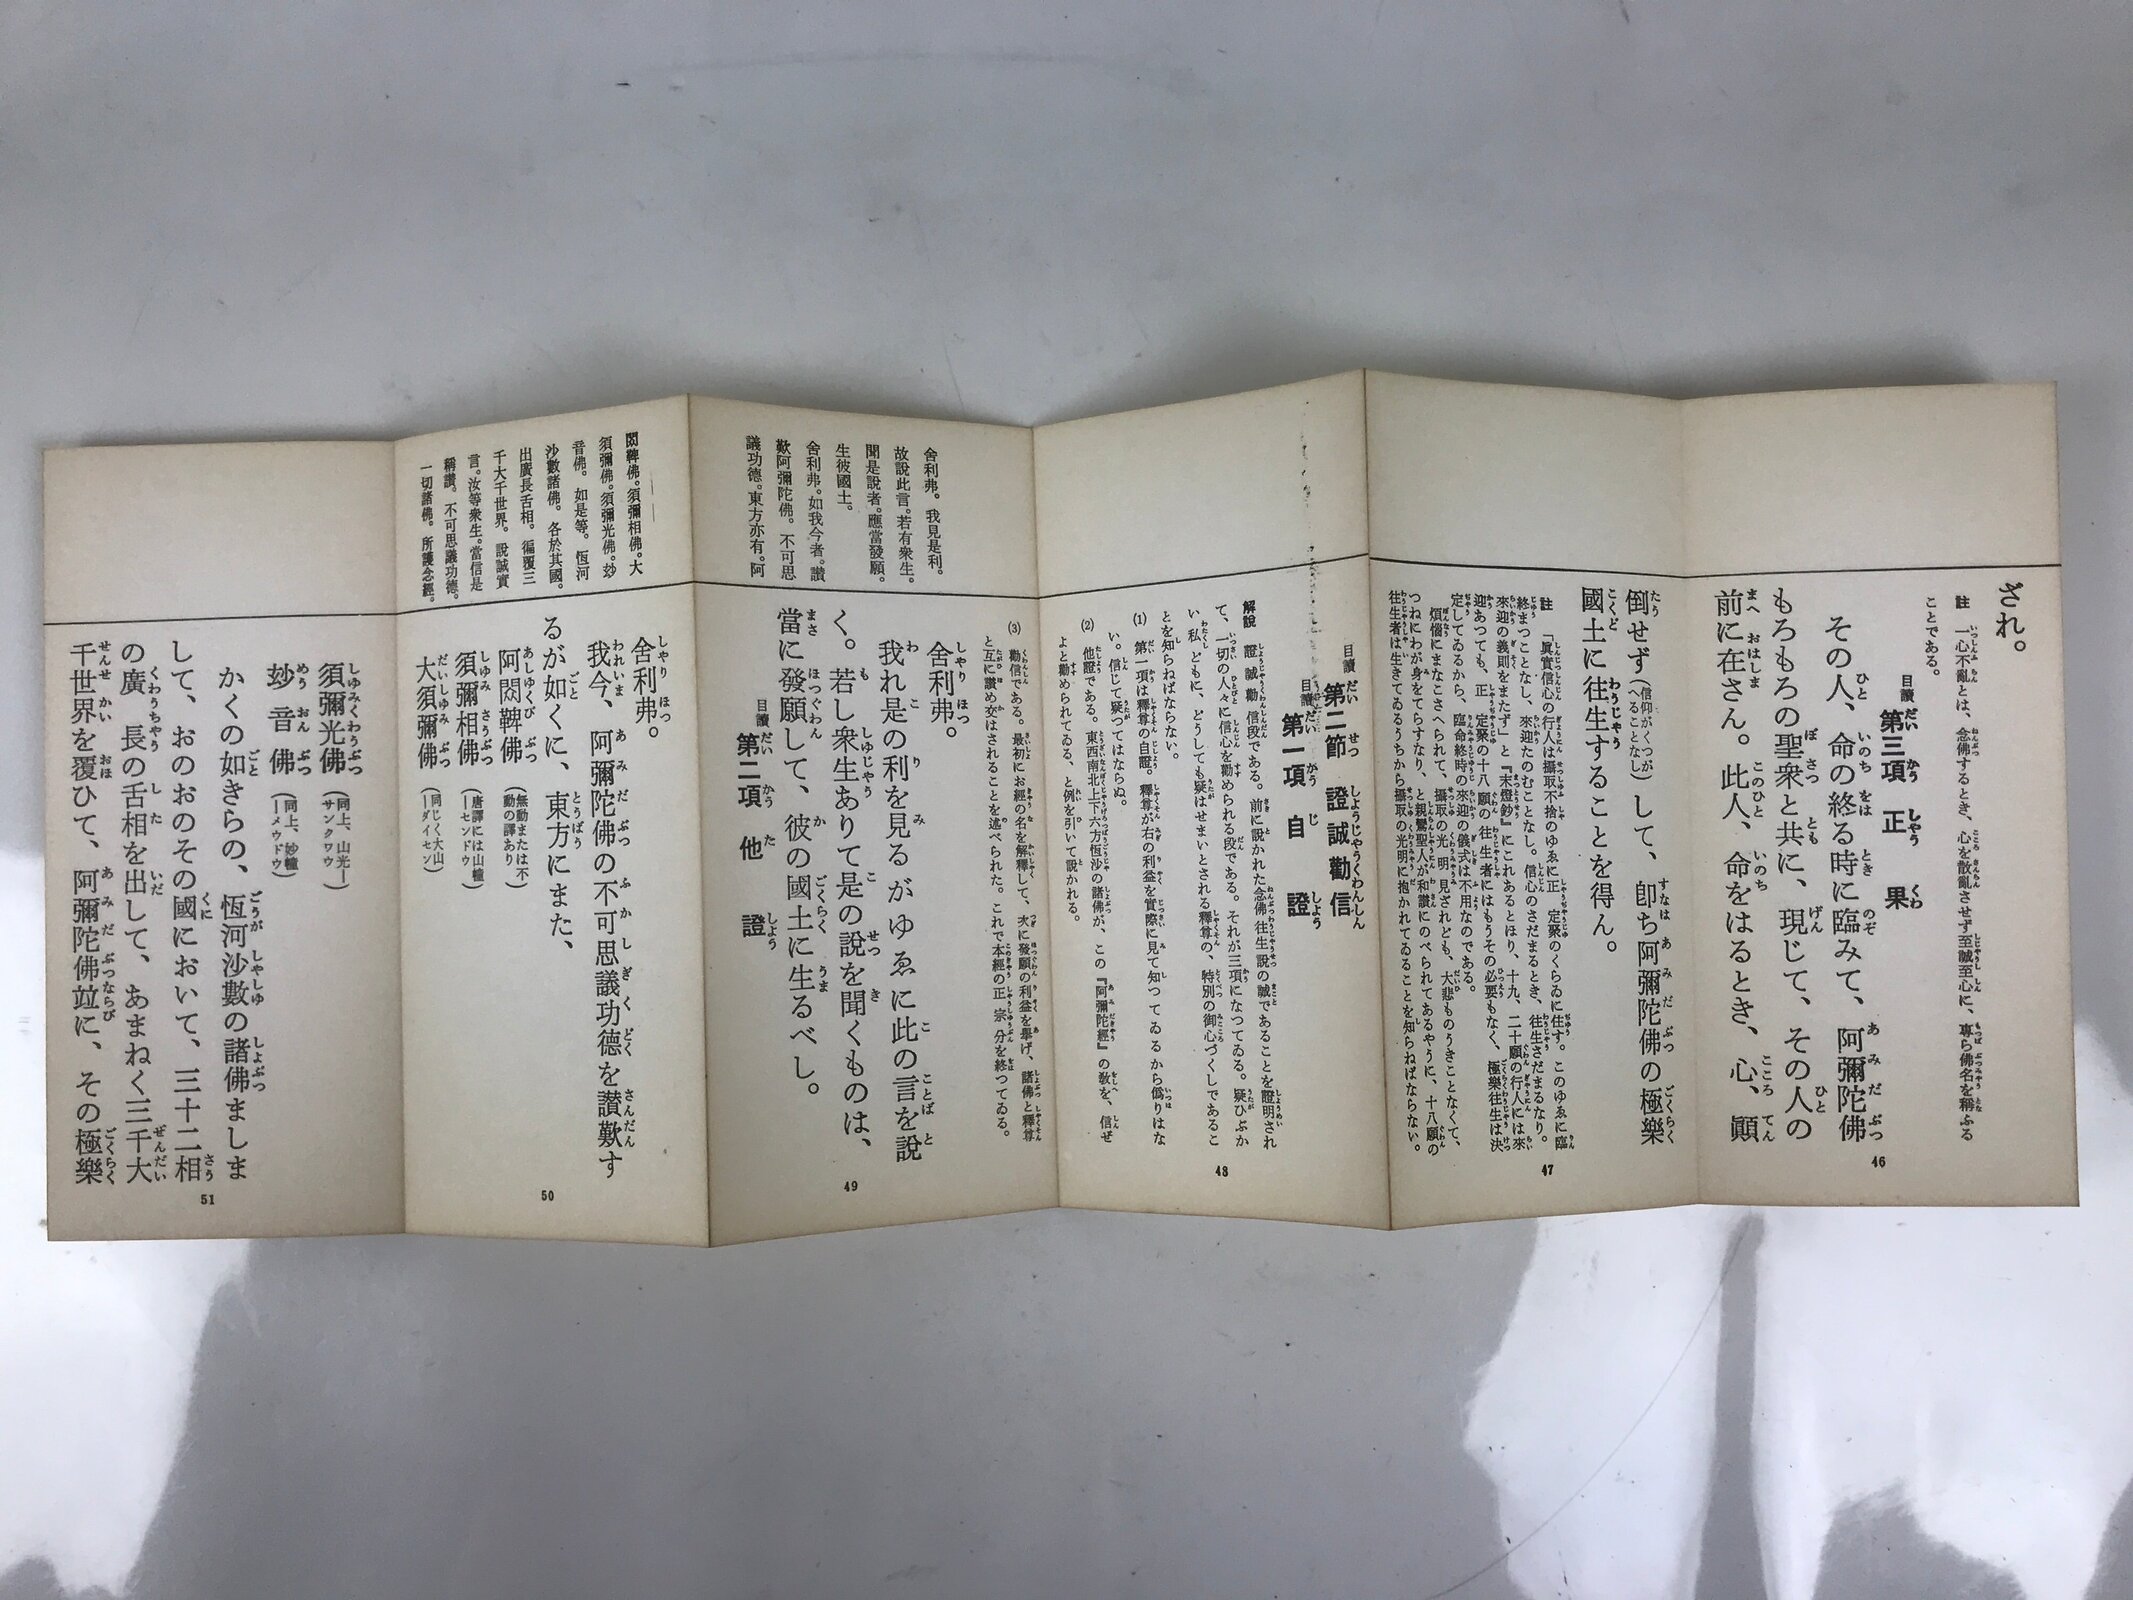 され。
註 一心不亂とは、念佛するとき、心を散亂させず至誠至心に、專ら佛名を稱ふる
ことである。
目讀 第三項 正果
その人、命の終る時に臨みて、阿彌陀佛
もろもろの聖衆と共に、現じて、その人の
前に在さん。此人、命をはるとき、心、顚
46
倒せず(信仰がくつがへることなし)して、卽ち阿彌陀佛の極樂
國土に往生することを得ん。
註 「眞實信心の行人は攝取不捨のゆゑに正定聚のくらゐに住す。このゆゑに臨
終まつことなし、來迎たのむことなし。信心のさだまるとき、往生さだまるなり。
來迎の義則をまたず」と『末燈鈔』にこれあるとほり、十九、二十願の行人には來
迎あつても、正定聚の十八願の往生者にはもうその必要もなく、極樂往生は決
定してゐるから、臨命終時の來迎の儀式は不用なのである。
煩惱にまなこさへられて、攝取の光明見ざれども、大悲ものうきことなくて、
つねにわが身をてらすなり、と親鸞聖人が和讃にのべられてあるやうに、十八願の
往生者は生きてゐるうちから攝取の光明に抱かれてゐることを知らねばならない。
47
目讀 第二節 證誠勸信
目讀 第一項 自證
解說 證誠勸信段である。前に說かれた念佛往生說の誠であることを證明され
て、一切の人々に信心を勸められる段である。それが三項になつてゐる。疑ひぶか
い私どもに、どうしても疑はせまいとされる釋尊の、特別の御心づくしであるこ
とを知らねばならない。
(1) 第一項は釋尊の自證。釋尊が右の利益を實際に見て知つてゐるから僞りはな
い。信じて疑つてはならぬ。
(2) 他證である。東西南北上下六方恆沙の諸佛が、この『阿彌陀經』の敎を、信ぜ
よと勸められてゐる、と例を引いて說かれる。
48
(3) 勸信である。最初にお經の名を解釋して、次に發願の利益を擧げ、諸佛と釋尊
と互に讃め交はされることを述べられた。これで本經の正宗分を終つてゐる。
舍利弗。我見是利。
故說此言。若有衆生。
聞是說者。應當發願。
生彼國土。
舍利弗。如我今者。讃
歎阿彌陀佛。不可思
議功德。東方亦有。阿
舍利弗。
我れ是の利を見るがゆゑに此の言を說
く。若し衆生ありて是の說を聞くものは、
當に發願して、彼の國土に生るべし。
目讀 第二項 他證
49
閦鞞佛。須彌相佛。大
須彌佛。須彌光佛。妙
音佛。如是等。恆河
沙數諸佛。各於其國。
出廣長舌相。徧覆三
千大千世界。說誠實
言。汝等衆生。當信是
稱讃。不可思議功德。
一切諸佛。所護念經。
舍利弗。
我今、阿彌陀佛の不可思議功德を讃歎す
るが如くに、東方にまた、
阿閦鞞佛(無動または不動の譯あり)
須彌相佛(唐譯には山幢ーセンドウ)
大須彌佛(同じく大山ーダイセン)
50
須彌光佛(同上、山光ーサンクワウ)
妙音佛(同上、妙幢ーメウドウ)
かくの如きらの、恆河沙數の諸佛ましま
して、おのおのその國において、三十二相
の廣長の舌相を出して、あまねく三千大
千世界を覆ひて、阿彌陀佛竝に、その極樂
51